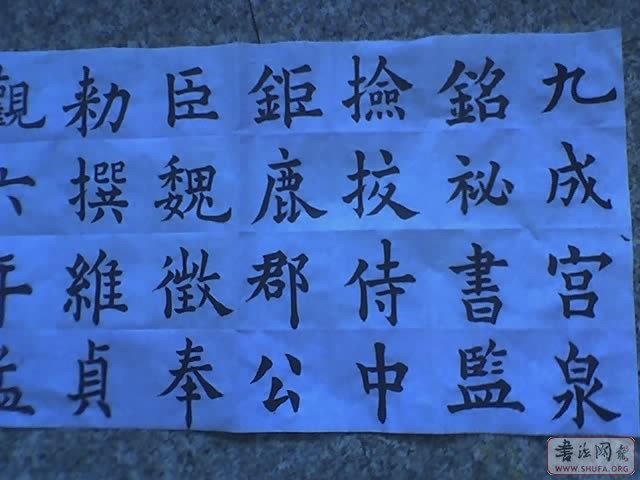 九成宫泉
銘祕書監
撿挍侍中
鉅鹿郡公
臣魏徵奉
勑撰維貞
觀六年孟
書法网
WWW.SHUFA.ORG